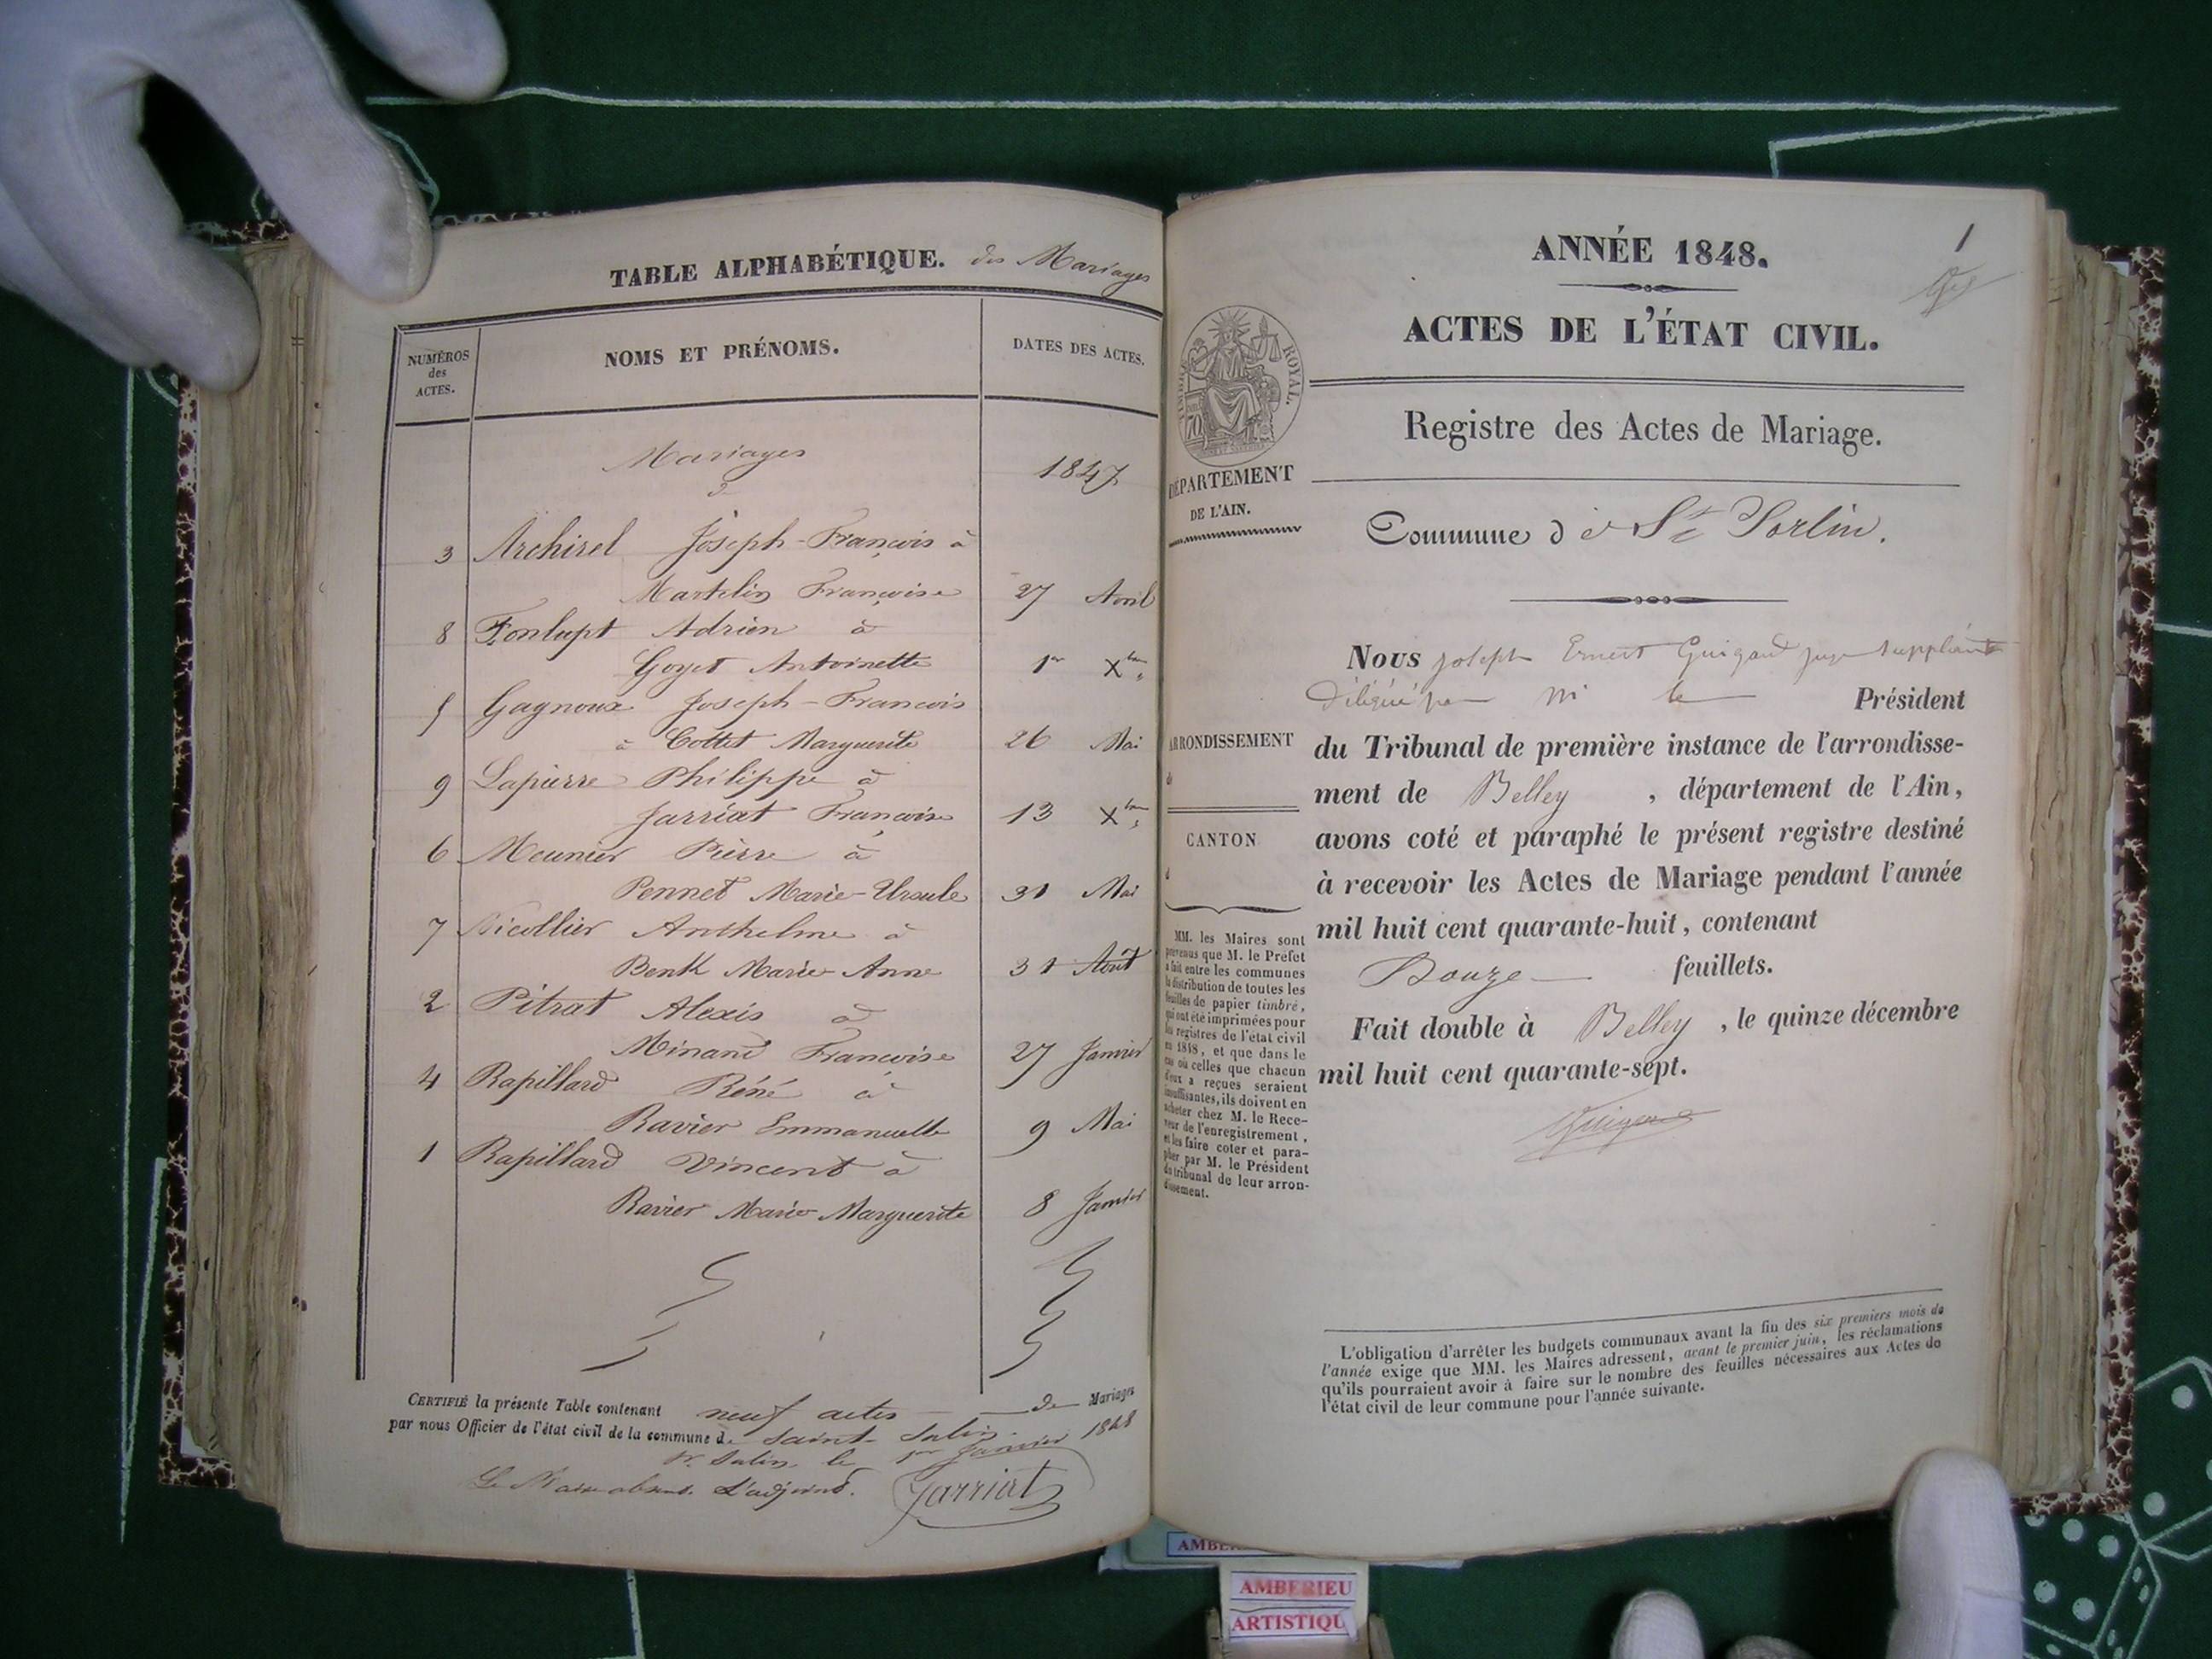 TABLE ALPHABÉTIQUE. des Mariages
NUMÉROS
des
ACTES.
NOMS ET PRÉNOMS.
DATES DES ACTES.
Mariages
1847
3 Archirel Joseph-François à
Martelin Françoise 27 Avril
8 Fonlupt Adrien à
Goyet Antoinette 1er Xbre
5 Gagnoux Joseph-Francois
à Cottet Marguerite 26 Mai
9 Lapierre Philippe à
Jarriat Françoise 13 Xbre
6 Meunier Pierre à
Pennet Marie-Ursule 31 Mai
7 Nicollier Anthelme à
Benk Marie-Anne 31 Août
2 Pitrat Alexis à
Minand Francoise 27 Janvier
4 Rapillard Réné à
Ravier Emmanuelle 9 Mai
1 Rapillard Vincent à
Ravier Marie Marguerite 8 Janvier
CERTIFIÉ la présente Table contenant neuf actes de Mariages
par nous Officier de l'état civil de la commune de Saint-Sulin
St. Sulin le 1er Janvier 1848
Le Maire absent. L'adjoint. Jarriat
1
ANNÉE 1848.
ACTES DE L'ÉTAT CIVIL.
TIMBRE ROYAL.
70
Registre des Actes de Mariage.
DÉPARTEMENT
DE L'AIN.
Commune de St Sorlin.
Nous Joseph Ernest Guigard juge suppléant
Délégué par M le Président
du Tribunal de première instance de l'arrondisse-
ment de Belley , département de l'Ain,
avons coté et paraphé le présent registre destiné
à recevoir les Actes de Mariage pendant l'année
mil huit cent quarante-huit, contenant
Douze feuillets.
Fait double à Belley , le quinze décembre
mil huit cent quarante-sept.
ARRONDISSEMENT
de
CANTON
d
MM. les Maires sont
prévenus que M. le Préfet
a fait entre les communes
la distribution de toutes les
feuilles de papier timbré,
qui ont été imprimées pour
les registres de l'état civil
en 1848, et que dans le
cas où celles que chacun
d'eux a reçues seraient
insuffisantes, ils doivent en
acheter chez M. le Rece-
veur de l'enregistrement,
et les faire coter et para-
pher par M. le Président
du tribunal de leur arron-
dissement.
L'obligation d'arrêter les budgets communaux avant la fin des six premiers mois de
l'année exige que MM. les Maires adressent, avant le premier juin, les réclamations
qu'ils pourraient avoir à faire sur le nombre des feuilles nécessaires aux Actes de
l'état civil de leur commune pour l'année suivante.
AMBERIEU
ARTISTIQU